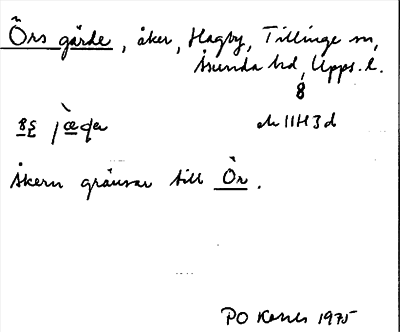 Örs gärde, åker, Hagby, Tillinge sn,
Åsunda hd, Upps. l.
8
ek 11H3d
Åkern gränsar till Ör.
PO 1975